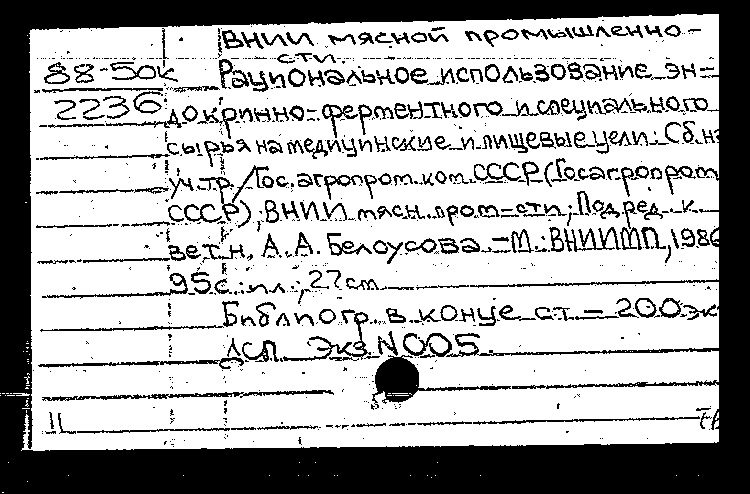 ВНИИ мясной промышленно-
сти.
88-50к Рациональное использование эн-
2236 докринно-ферментного и специального
сырья на медицинские и пищевые цели: Сб. н
уч. тр. / Гос. агропром. ком. СССР (Госагропром
СССР), ВНИИ мясн. пром-сти; Под ред. к.
вет. н. А. А. Белоусова. - М.: ВНИИМП, 1986
95с.: ил.; 27см
Библиогр. в конце ст. - 200эк
ДСП. Экз N005.
11